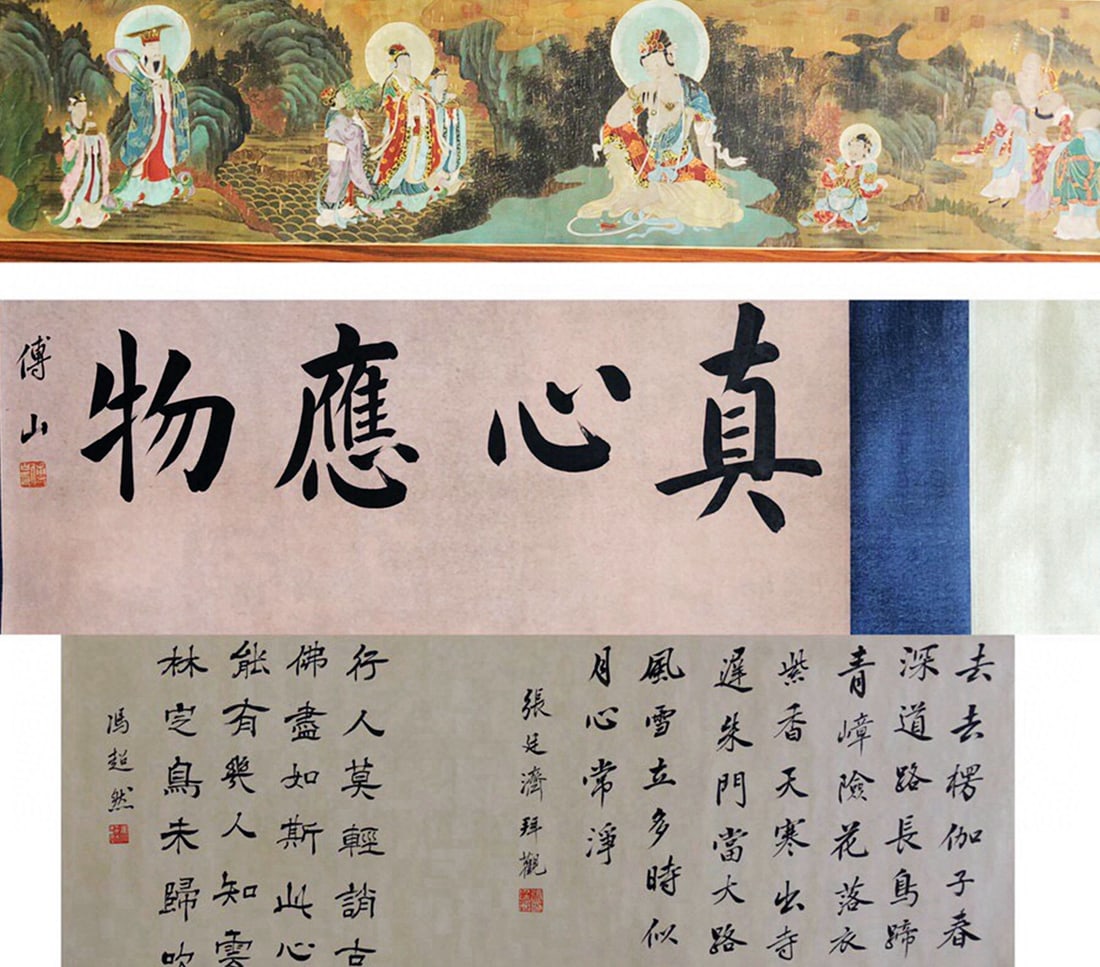 真心應物
傅山
去去楞伽子春
深道路長鳥蹄
青嶂險花落衣
紫香天寒出寺
遲朱門當大路
風雪立多時似
月心常淨
張廷濟拜觀
行人莫輕誚古
佛盡如斯此心
能有幾人知雲
林定鳥未歸吹
馮超然